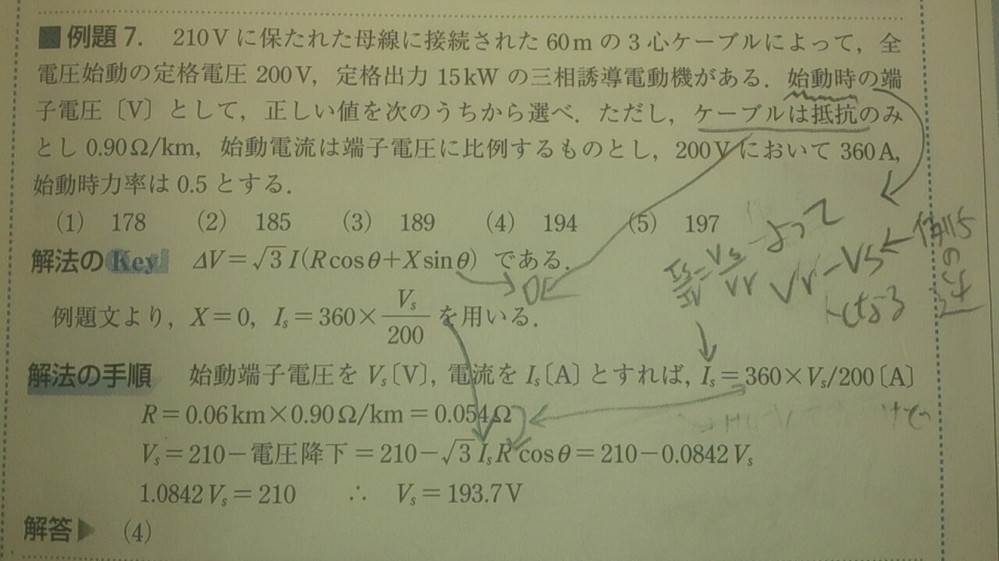 ■例題7. 210Vに保たれた母線に接続された60mの3心ケーブルによって，全
電圧始動の定格電圧200V，定格出力15kWの三相誘導電動機がある．始動時の端
子電圧〔V〕として，正しい値を次のうちから選べ．ただし，ケーブルは抵抗のみ
とし0.90Ω/km，始動電流は端子電圧に比例するものとし，200Vにおいて360A，
始動時力率は0.5とする．
(1) 178 (2) 185 (3) 189 (4) 194 (5) 197
解法のKey ΔV＝√3I(Rcosθ＋Xsinθ) である．
例題文より，X＝0，Is＝360×Vs/200を用いる．
Is/Ir＝Vs/Vr よって
Vr－Vs
となる
解法の手順 始動端子電圧をVs〔V〕，電流をIs〔A〕とすれば，Is＝360×Vs/200〔A〕
R＝0.06km×0.90Ω/km＝0.054Ω
Vs＝210－電圧降下＝210－√3IsRcosθ＝210－0.0842Vs
1.0842Vs＝210 ∴ Vs＝193.7V
解答▶ (4)